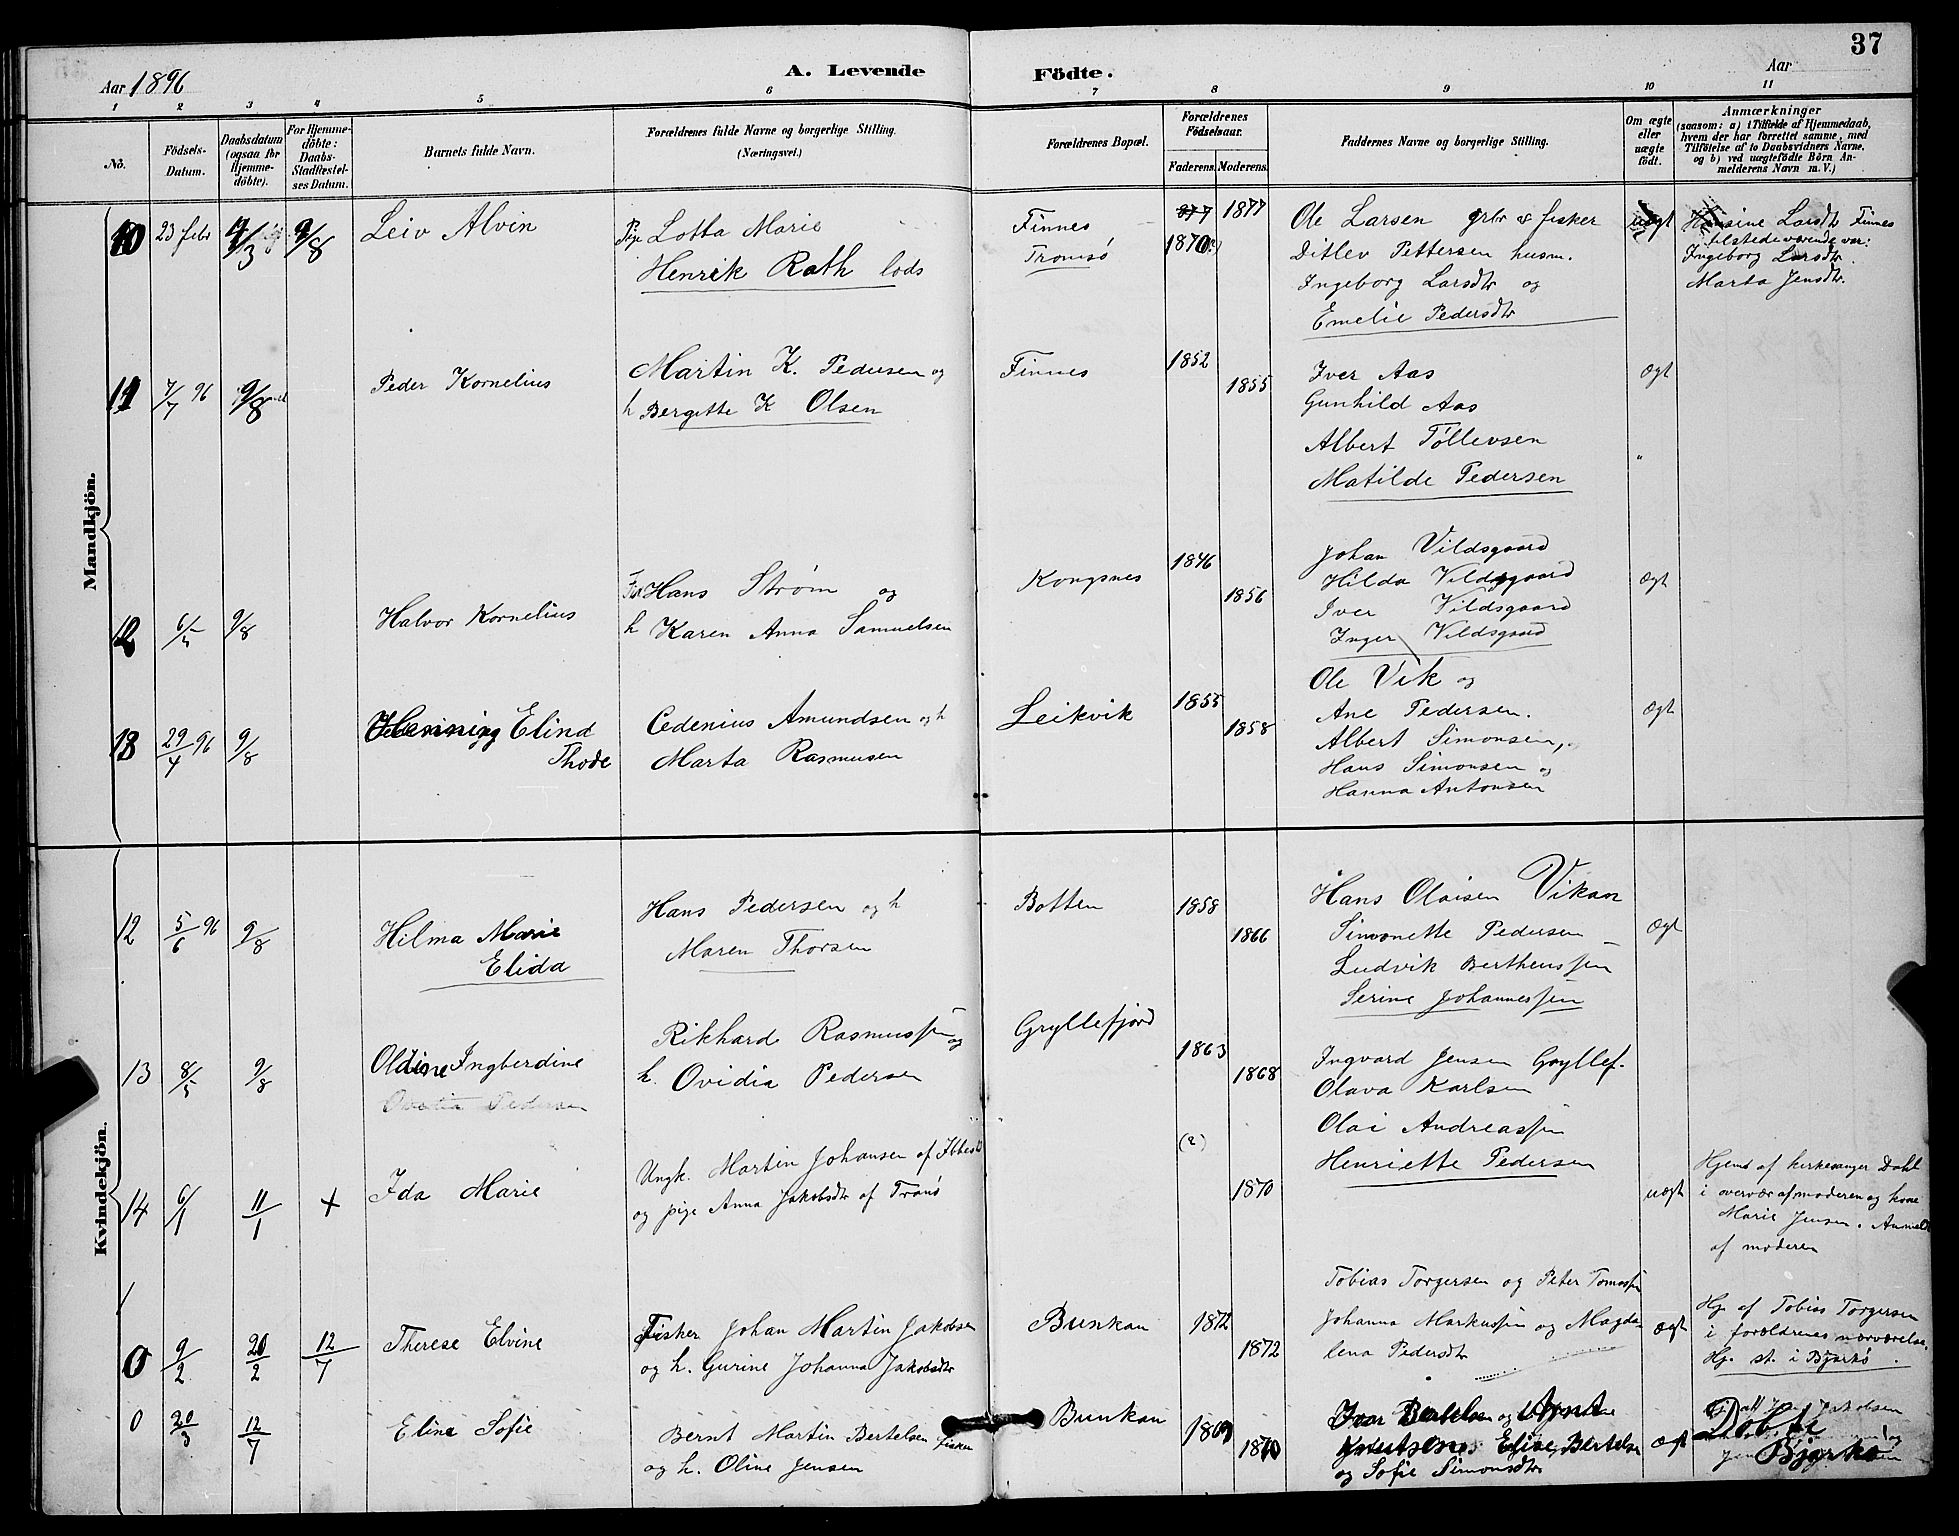 37
Aar 1896 A. Levende Födte. Aar
1 2 3 4 5 6 7 8 9 10 11
No.
Födsels-Datum.
Daabsdatum (ogsaa for Hjemme-döbte).
For Hjemme-döbte: Daabs-Stadfæstel-ses Datum.
Barnets fulde Navn.
Forældrenes fulde Navne og borgerlige Stilling.
(Næringsvei.)
Forældrenes Bopæl.
Forældrenes Födselsaar.
Faderens. Moderens.
Faddernes Navne og borgerlige Stilling.
Om ægte eller uægte födt.
Anmærkninger
(saasom: a) i Tilfælde af Hjemmedaab,
hvem der har forrettet samme, med
Tilföielse af to Daabsvidners Navne,
og b) ved uægtefödte Börn An-
melderens Navn m. V.)
Mandkjön.
10 23 febr 4/3 9/8 Leiv Alvin
Pige Lotta Marie
Henrik Rath lods
Finnes
Tromsö
877 1877
1870(?)
Ole Larsen grbr & fisker
Ditlev Pettersen husm.
Ingeborg Larsdtr og
Emelie Pedersdtr
uægt
Hansine Larsdtr Finnes
tilstedeværende var:
Ingeborg Larsdtr.
Marta Jensdtr.
11 7/7 96 9/8 Peder Kornelius
Martin K. Pedersen og
h Bergitte K Olsen
Finnes
1852
1855
Iver Aas
Gunhild Aas
Albert Töllevsen
Matilde Pedersen
Ægt
"
12 6/5 9/8 Halvor Kornelius
Hans Strøm og
h Karen Anna Samuelsen
Kongsnes
1846
1856
Johan Vildsgaard
Hilda Vildsgaard
Iver Vildsgaard
Inger Vildsgaard
Ægt
13 29/4 96 9/8 Henning Elind
Thode
Cedenius Amundsen og h
Marta Rasmusen
Leikvik
1855
1858
Ole Vik og
Ane Pedersen.
Albert Simonsen,
Hans Simonsen og
Hanna Antonsen
Ægt
Kvindekjön.
12 5/6 96 9/8 Hilma Marie
Elida
Hans Pedersen og h
Maren Thorsen
Botten
1858
1866
Hans Olaisen Vikan
Simonette Pedersen
Ludvik Berthenssen
Serine Johannessen
Ægt
13 8/5 9/8 Oldine Ingberdine
Ovidia Pedersen
Rikhard Rasmussen og
h. Ovidia Pedersen
Gryllefjord
1863
1868
Ingvard Jensen Gryllef.
Olava Karlsen
Olai Andreassen
Henriette Pedersen
14 6/1 11/1 + Ida Marie
Ungk. Martin Johansen af Ibbestd
og pige Anna Jakobsdtr af Tranö
(?)
1870
uægt
Hjemd af kirkesanger Dahl
i overvær af moderen og kone
Marie Jensen. Anmeldt
af moderen
0 9/2 20/2 12/7 Therese Elvine
Fisker Johan Martin Jakobsen
og h. Gurine Johanna Jakobsdtr
Bunkan
1872
1872
Tobias Torgersen og Peter Tomassen
Johanna Markussen og Magda-
lena Pedersdtr
ægt
Hj. af Tobias Torgersen
i forældrenes nærværelse.
Hj. st. i Bjarkö.
0 20/3 12/7 Eline Sofie
Bernt Martin Bertelsen fisker
og h. Oline Jensen
Bunkan
1869
1870
Ivar Bertelsen og Arnt
Knutsen, Elise Bertelsen
og Sofie Simonsdtr
Ægt
Döbt i
Bjarkö